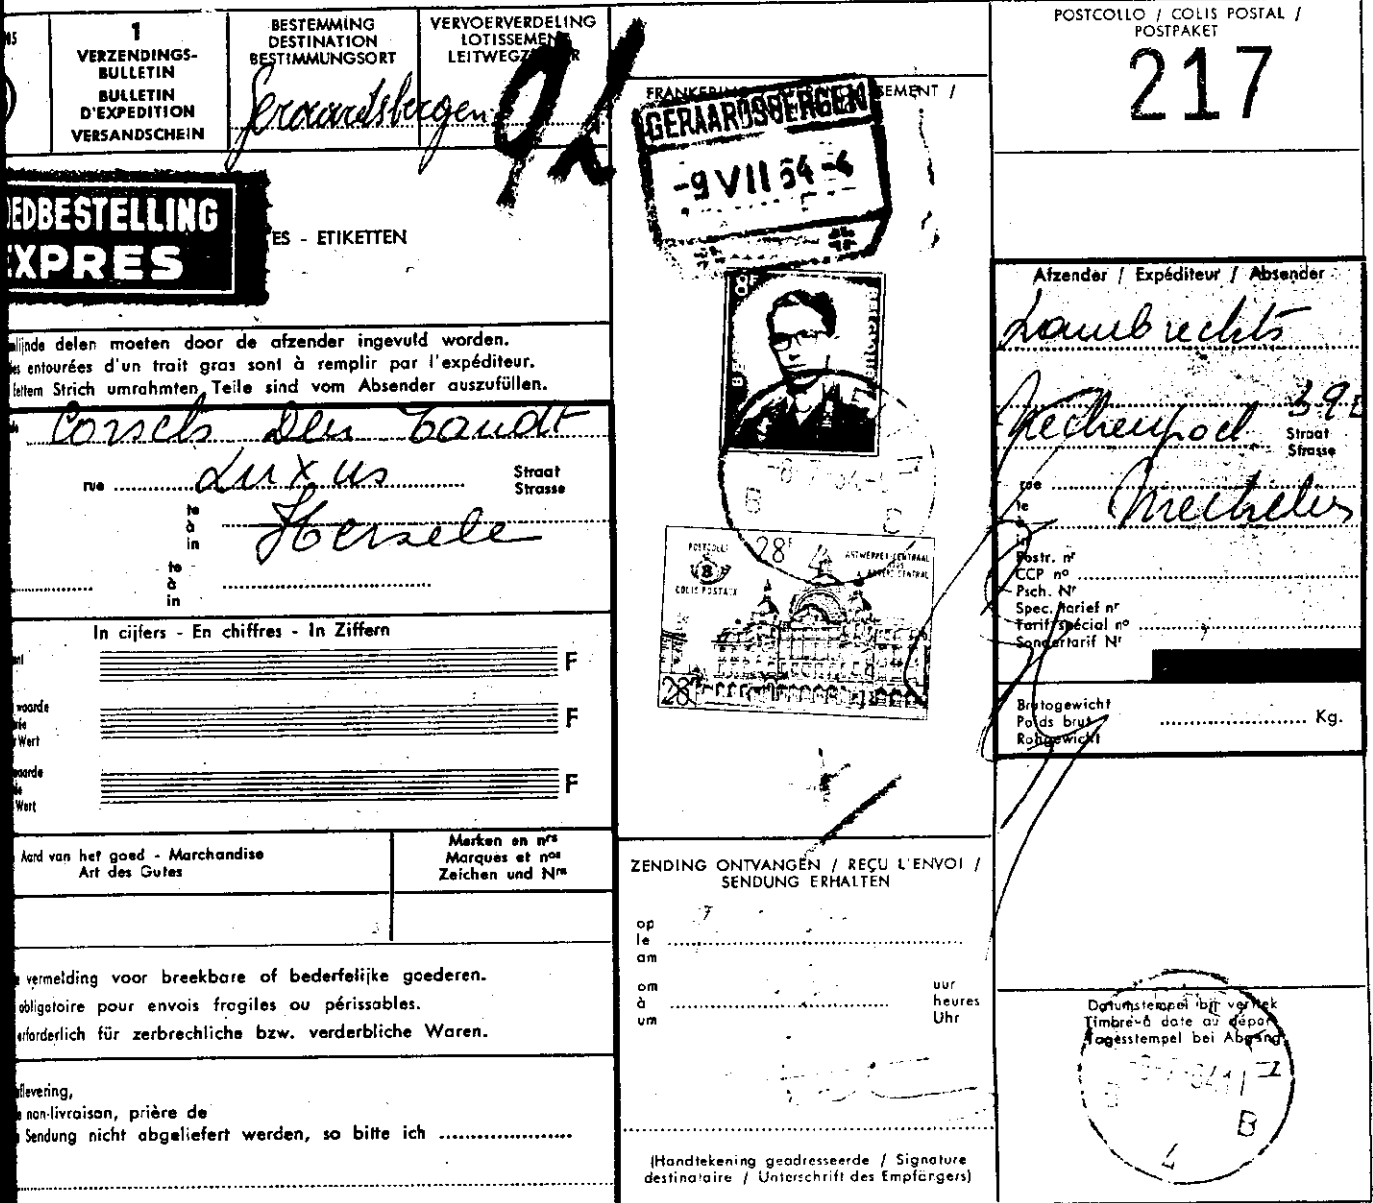 1
VERZENDINGS-
BULLETIN
BULLETIN
D'EXPEDITION
VERSANDSCHEIN
BESTEMMING
DESTINATION
BESTIMMUNGSORT
Geraardsbergen
VERVOERVERDELING
LOTISSEMENT
FRANKERING
GERAARDSBERGEN
-9 VII 64 -4
POSTCOLLO / COLIS POSTAL /
POSTPAKET
217
EDBESTELLING
EXPRES
ES - ETIKETTEN
lijnde delen moeten door de afzender ingevuld worden.
es entourées d'un trait gras sont à remplir par l'expéditeur.
fettem Strich umrahmten Teile sind vom Absender auszufüllen.
Corsels Den Tandt
rue Luxus Straat
Strasse
te
à
in
Herzele
te
à
in
In cijfers - En chiffres - In Ziffern
F
waarde
Wert
F
Wert
F
Aard van het goed - Marchandise
Art des Gutes
Merken en nrs
Marques et nos
Zeichen und Nrn
vermelding voor breekbare of bederfelijke goederen.
obligatoire pour envois fragiles ou périssables.
erforderlich für zerbrechliche bzw. verderbliche Waren.
aflevering,
non-livraison, prière de
Sendung nicht abgeliefert werden, so bitte ich
8F
POSTCOLLI
COLIS POSTAUX
28F
ANTWERPEN-CENTRAAL
1905
ANVERS-CENTRAL
28F
B B
ZENDING ONTVANGEN / REÇU L'ENVOI /
SENDUNG ERHALTEN
op
le
am
om
à
um
uur
heures
Uhr
(Handtekening geadresseerde / Signature
destinataire / Unterschrift des Empfängers)
Afzender / Expéditeur / Absender
Lambrechts
Straat
Strasse
rue
te
à
in
Mechelen
Postr. nr
CCP no
Psch. Nr
Spec. tarief nr
Tarif spécial no
Sondertarif Nr
Brutogewicht
Poids brut
Rohgewicht
Kg.
Datumstempel bij vertrek
Timbre à date au départ
Tagesstempel bei Abgang
B
4